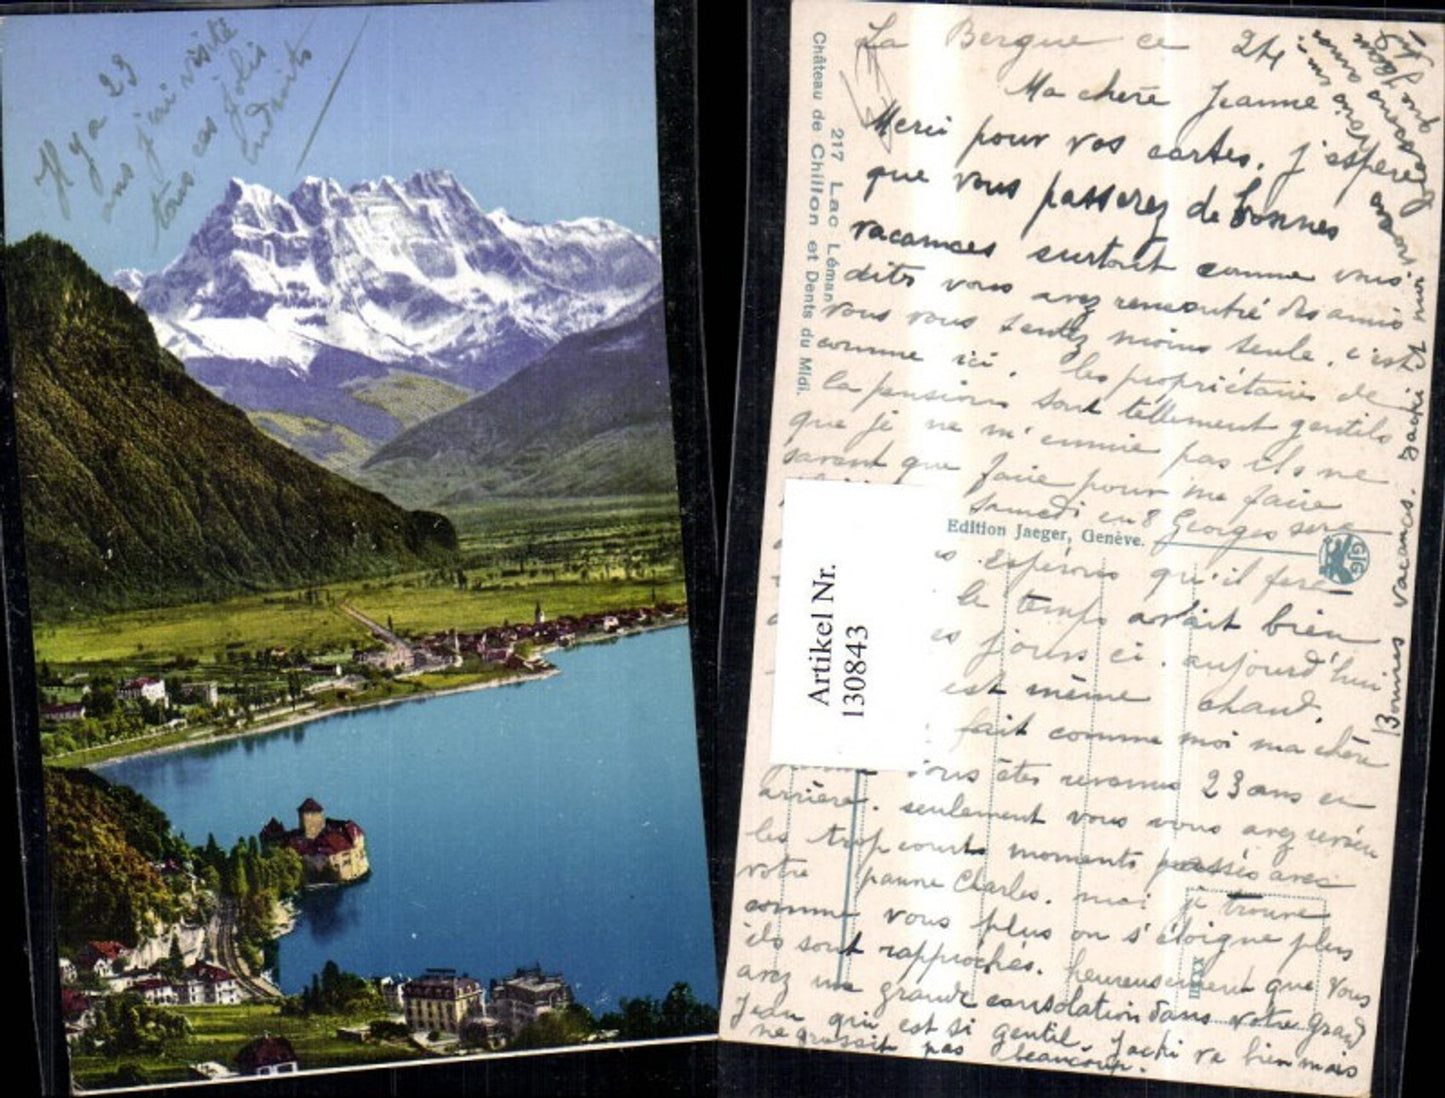 Il y a 23
ans j'ai visité
tous ces jolis
endroits
217 Lac Léman
Château de Chillon et Dents du Midi.
La Bergue ce 24
Ma chère Jeanne
Merci pour vos cartes. j'espère
que vous passerez de bonnes
vacances surtout comme vous
dites vous avez rencontré des amis
vous vous sentez moins seule. c'est
comme ici. les propriétaires de
la pension sont tellement gentils
que je ne m'ennuie pas ils ne
savent que faire pour me faire
Samedi en 8 Georges sera
Edition Jaeger, Genève.
GJG
Artikel Nr.
130843
espérons qu'il fera
le temps avait bien
jours ci. aujourd'hui
est même chaud.
fait comme moi ma chère
vous êtes revenus 23 ans en
arrière. seulement vous vous avez revécu
les trop courts moments passés avec
votre pauvre Charles. moi je trouve
comme vous plus on s'éloigne plus
ils sont rapprochés. heureusement que vous
avez une grande consolation dans votre grand
Jean qui est si gentil. Jacki va bien mais
ne grossit pas beaucoup.
Bonnes vacances. Jacki et moi